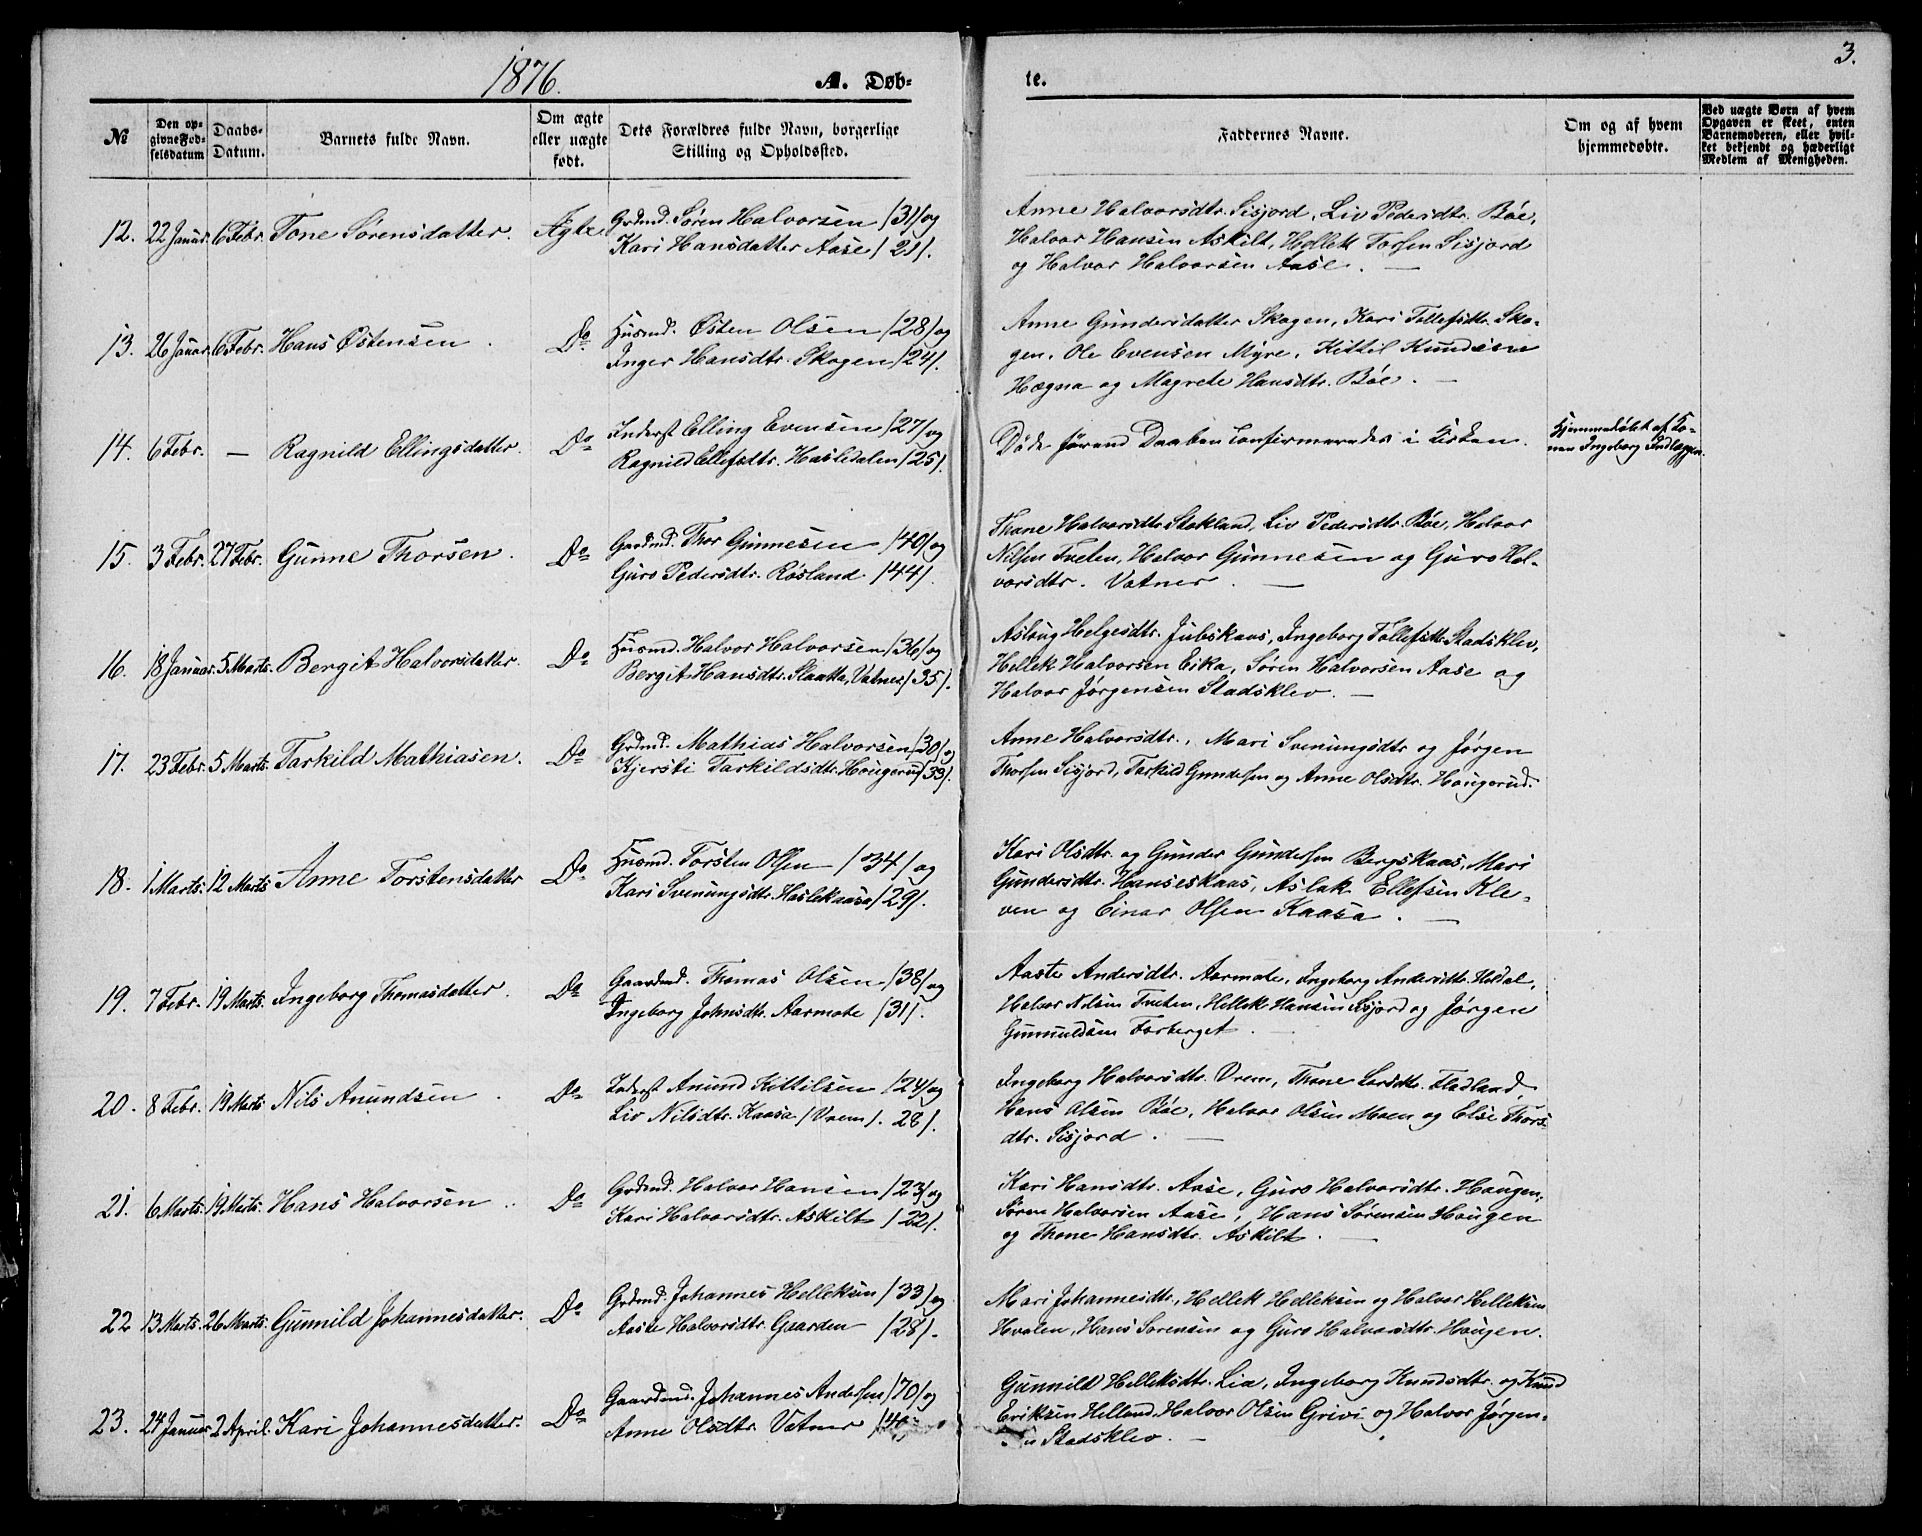 3.
1876.
A. Døb-
te.
№
Den op-
givne Fød-
selsdatum
Daabs-
Datum.
Barnets fulde Navn.
Om ægte
eller uægte
født.
Dets Forældres fulde Navn, borgerlige
Stilling og Opholdssted.
Faddernes Navne.
Om og af hvem
hjemmedøbte.
Ved uægte Børn af hvem
Opgaven er skeet, enten
Barnemoderen, eller hvil-
ket bekjendt og hæderligt
Medlem af Menigheden.
12. 22 Januar. 6 Febr. Tone Sörensdatter. Ægte
Grdmd. Sören Halvorsen /31/ og
Kari Hansdatter Aase /21/.
Anne Halvorsdtr. Sisjord, Liv Pedersdtr. Böe,
Halvor Hansen Askilt, Hellek Torsen Sisjord
og Halvor Halvorsen Aase. —
13. 26 Januar. 6 Febr. Hans Östensen. Do
Husmd. Östen Olsen /28/ og
Inger Hansdtr. Skogen /24/.
Anne Gundersdatter Skogen, Kari Tollefsdtr. Sko-
gen, Ole Evensen Myre, Kittil Knudsen
Hægna og Magrete Hansdtr. Böe. —
14. 6 Febr. — Ragnild Ellingsdatter. Do
Inderst Elling Evensen /27/ og
Ragnild Ellefsdtr. Hasledalen /25/.
Döde förend Daaben confirmeredes i Kirken.
Hjemmedöbt af Ko-
nen Ingeborg Indlæggen.
15. 3 Febr. 27 Febr. Gunne Thorsen. Do
Gaardmd. Thor Gunnesen /40/ og
Guro Pedersdtr. Rösland /44/.
Thone Halvorsdtr. Stokland, Liv Pedersdtr. Böe, Halvor
Nilsen Tveten, Halvor Gunnesen og Guro Hal-
vorsdtr. Vatner. —
16. 18 Januar. 5 Marts. Bergit Halvorsdatter. Do
Husmd. Halvor Halvorsen /36/ og
Bergit Hansdtr. Slaatta, Vatnes /35/.
Aslaug Helgesdtr. Jubskaas, Ingeborg Tollefsdtr. Stadsklev,
Hellek Halvorsen Eika, Sören Halvorsen Aase og
Halvor Jörgensen Stadsklev. —
17. 23 Febr. 5 Marts. Tarkild Mathiasen. Do
Grdmd. Mathias Halvorsen /30/ og
Kjersti Tarkildsdtr. Hougerud /33/.
Anne Halvorsdtr., Mari Svenungsdtr og Jörgen
Thorsen Sisjord, Tarkild Gundersen og Anne Olsdtr. Hougerud.
18. 1 Marts. 12 Marts Anne Torstensdatter Do
Husmd. Torsten Olsen /34/ og
Kari Svenungsdtr. Haslekaasa /29/.
Kari Olsdtr. og Gunder Gundersen Bergskaas, Mari
Gundersdtr. Hanseskaas, Aslak Ellefsen Kle-
ven og Einar Olsen Kaasa. —
19. 7 Febr. 19 Marts. Ingeborg Thomasdatter. Do
Gaardmd. Thomas Olsen /38/ og
Ingeborg Johnsdtr. Aarmote /31/.
Aaste Andersdtr. Aarmote, Ingeborg Andersdtr. Heldal,
Halvor Nilsen Tveten, Hellek Hansen Sisjord og Jörgen
Gunnuldsen Forberget. —
20. 8 Febr. 19 Marts Nils Anundsen. Do
Inderst Anund Kittilsen /24/ og
Liv Nilsdtr. Kaasa /Vrem/. 28/.
Ingeborg Halvorsdtr. Vrem, Thone Larsdtr. Fladland,
Hans Olsen Böe, Halvor Olsen Moen og Else Thors-
dtr. Sisjord. —
21. 6 Marts. 19 Marts. Hans Halvorsen. Do
Grdmd. Halvor Hansen /23/ og
Kari Halvorsdtr. Askilt /22/.
Kari Hansdtr. Aase, Guro Halvorsdtr. Hougen,
Sören Halvorsen Aase, Hans Sörensen Hougen
og Thone Hansdtr. Askilt. —
22 13 Marts. 26 Marts. Gunnild Johannesdatter. Do
Grdmd. Johannes Helleksen /33/ og
Aaste Halvorsdtr. Gaarden /28/.
Mari Johannesdtr., Hellek Helleksen og Halvor Helleksen
Hvalen, Hans Sorensen og Guro Halvorsdtr. Hougen.
23. 24 Januar 2 April. Kari Johannesdatter. Do
Gaardmd. Johannes Andersen /70/ og
Anne Olsdtr. Vatner
Gunnild Helleksdtr. Lia, Ingeborg Knudsdtr. og Knud
Eriksen Helland, Halvor Olsen Grivi og Halvor Jörgen-
Stadsklev. —